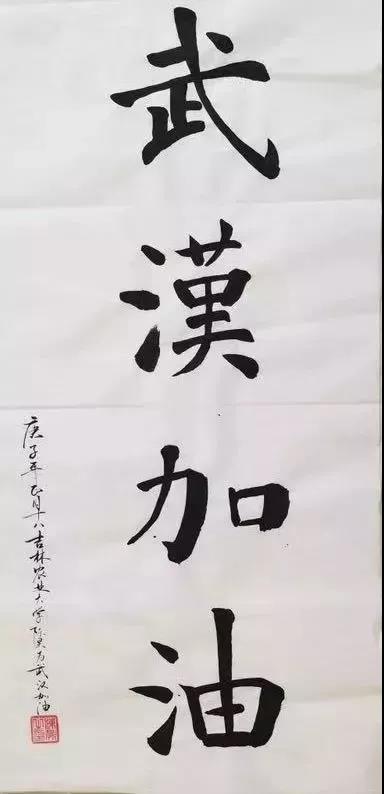 武漢加油
庚子年正月十八吉林农业大学为武汉加油